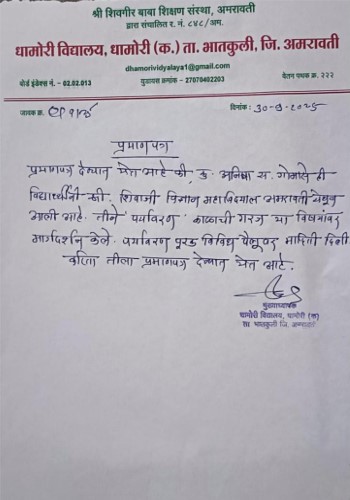 श्री शिवगीर बाबा शिक्षण संस्था, अमरावती
द्वारा संचालित र. नं. ८४८/अम.
धामोरी विद्यालय, धामोरी (क.) ता. भातकुली, जि. अमरावती
dhamorividyalaya1@gmail.com
बोर्ड इंडेक्स नं. - 02.02.013 युडायस क्रमांक - 27070402203 वेतन पथक क्र. २२२
जावक क्र. दिनांक : 30-9-2025
प्रमाणपत्र
प्रमाणपत्र देण्यात येत आहे की, कु. स. गोमासे ही
विद्यार्थीनी श्री. शिवाजी विज्ञान महाविद्यालय अमरावती येथून
आली आहे. तीने पर्यावरण काळाची गरज या विषयांवर
मार्गदर्शन केले. पर्यावरण पुरक विविध पैलूवर माहिती दिली
करिता तीला प्रमाणपत्र देण्यात येत आहे.
मुख्याध्यापक
धामोरी विद्यालय, धामोरी (क)
ता. भातकुली जि. अमरावती